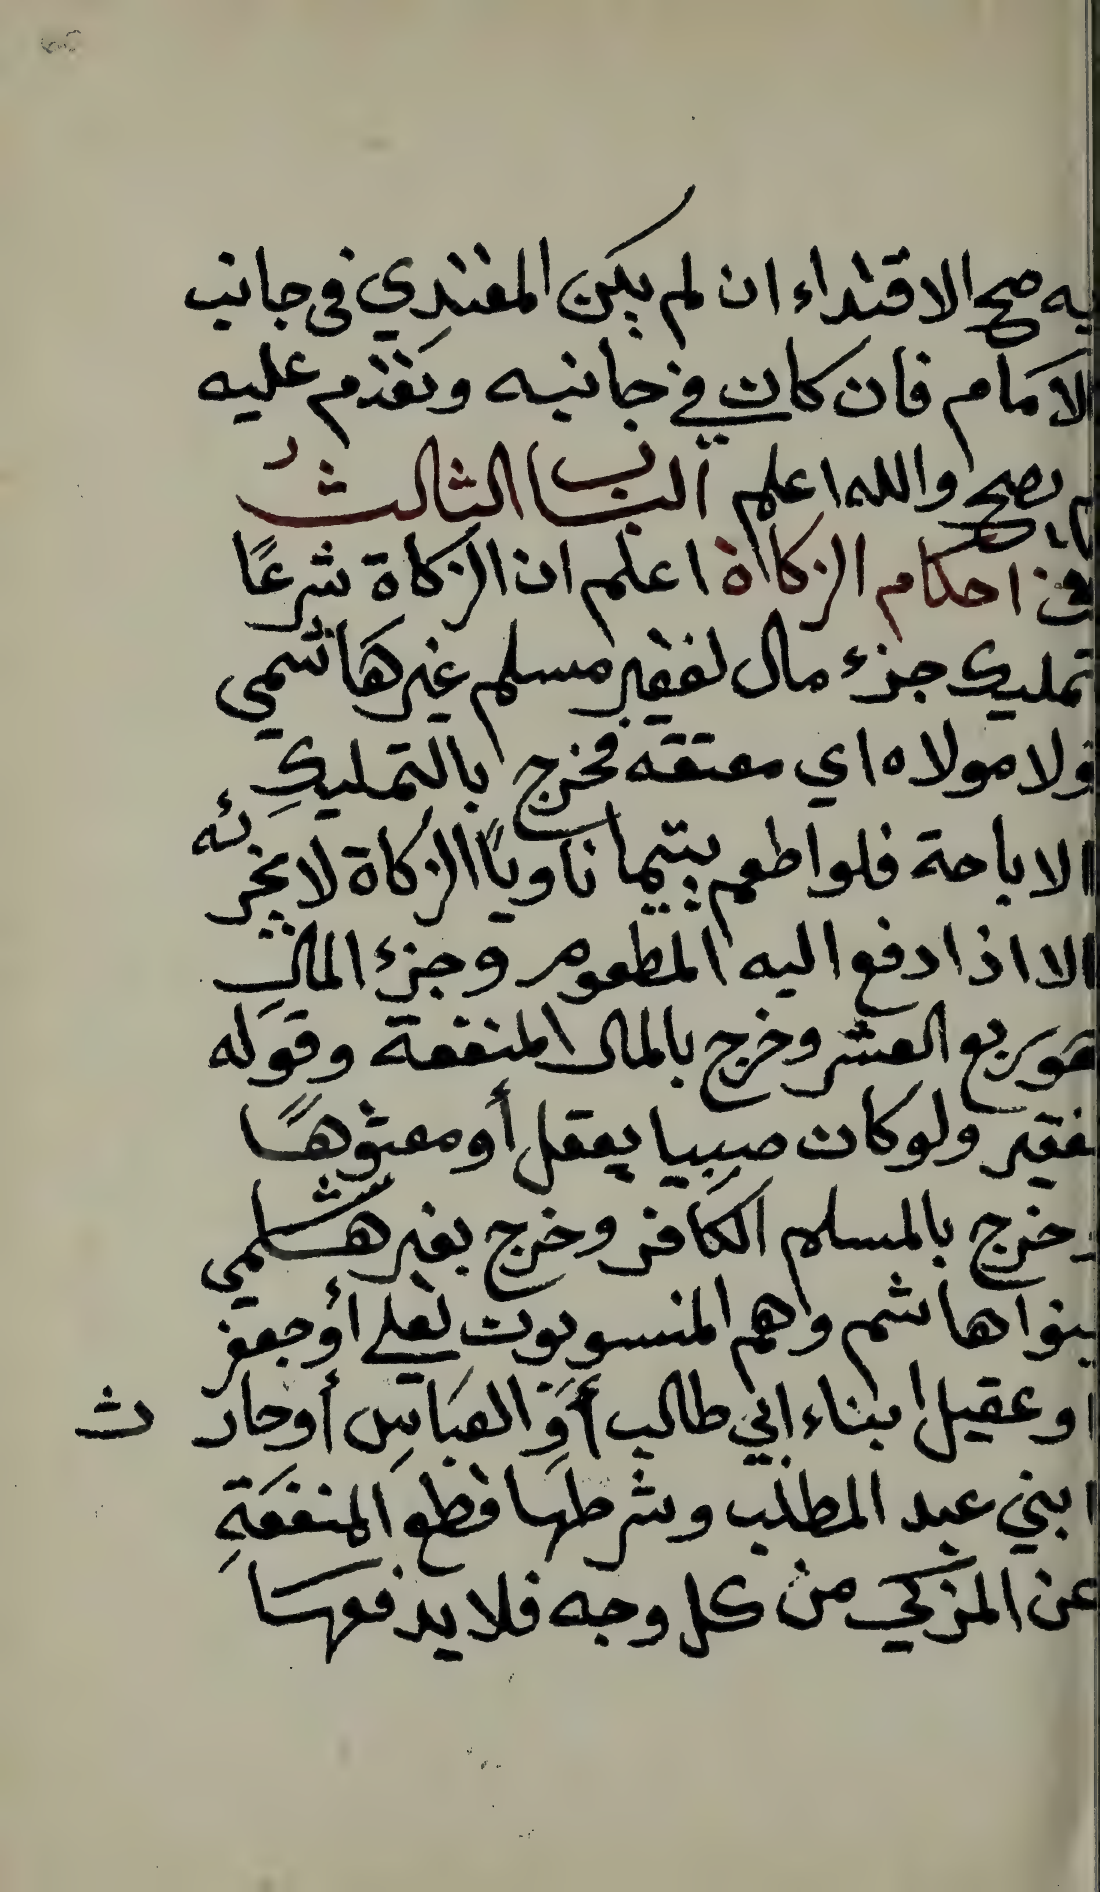 يه صح الاقتداء ان لم يكن المقتدي في جانب
الامام فان كان في جانبه وتقدم عليه
لم يصح والله اعلم الباب الثالث
في احكام الزكاة اعلم ان الزكاة شرعًا
تمليك جزء مال لفقير مسلم غير هاشمي
ولا مولاه اي معتقه فخرج بالتمليكِ
الاباحة فلو اطعم يتيما ناويًا الزكاة لا يجزئه
الا اذا دفع اليه المطعوم وجزء المال
هو ربع العشر وخرج بالمال المنفعة وقوله
لفقير ولو كان صبيا يعقل أو معتوهًا
وخرج بالمسلم الكافر وخرج بغير هاشمي
بنوا هاشم وهم المنسوبون لعلي أو جعفر
او عقيل ابناء ابي طالب أَو العباسِ أو حارث
ابني عبد المطلب وشرطها قطع المنفعَةِ
عن المزكي من كل وجه فلا يدفعها